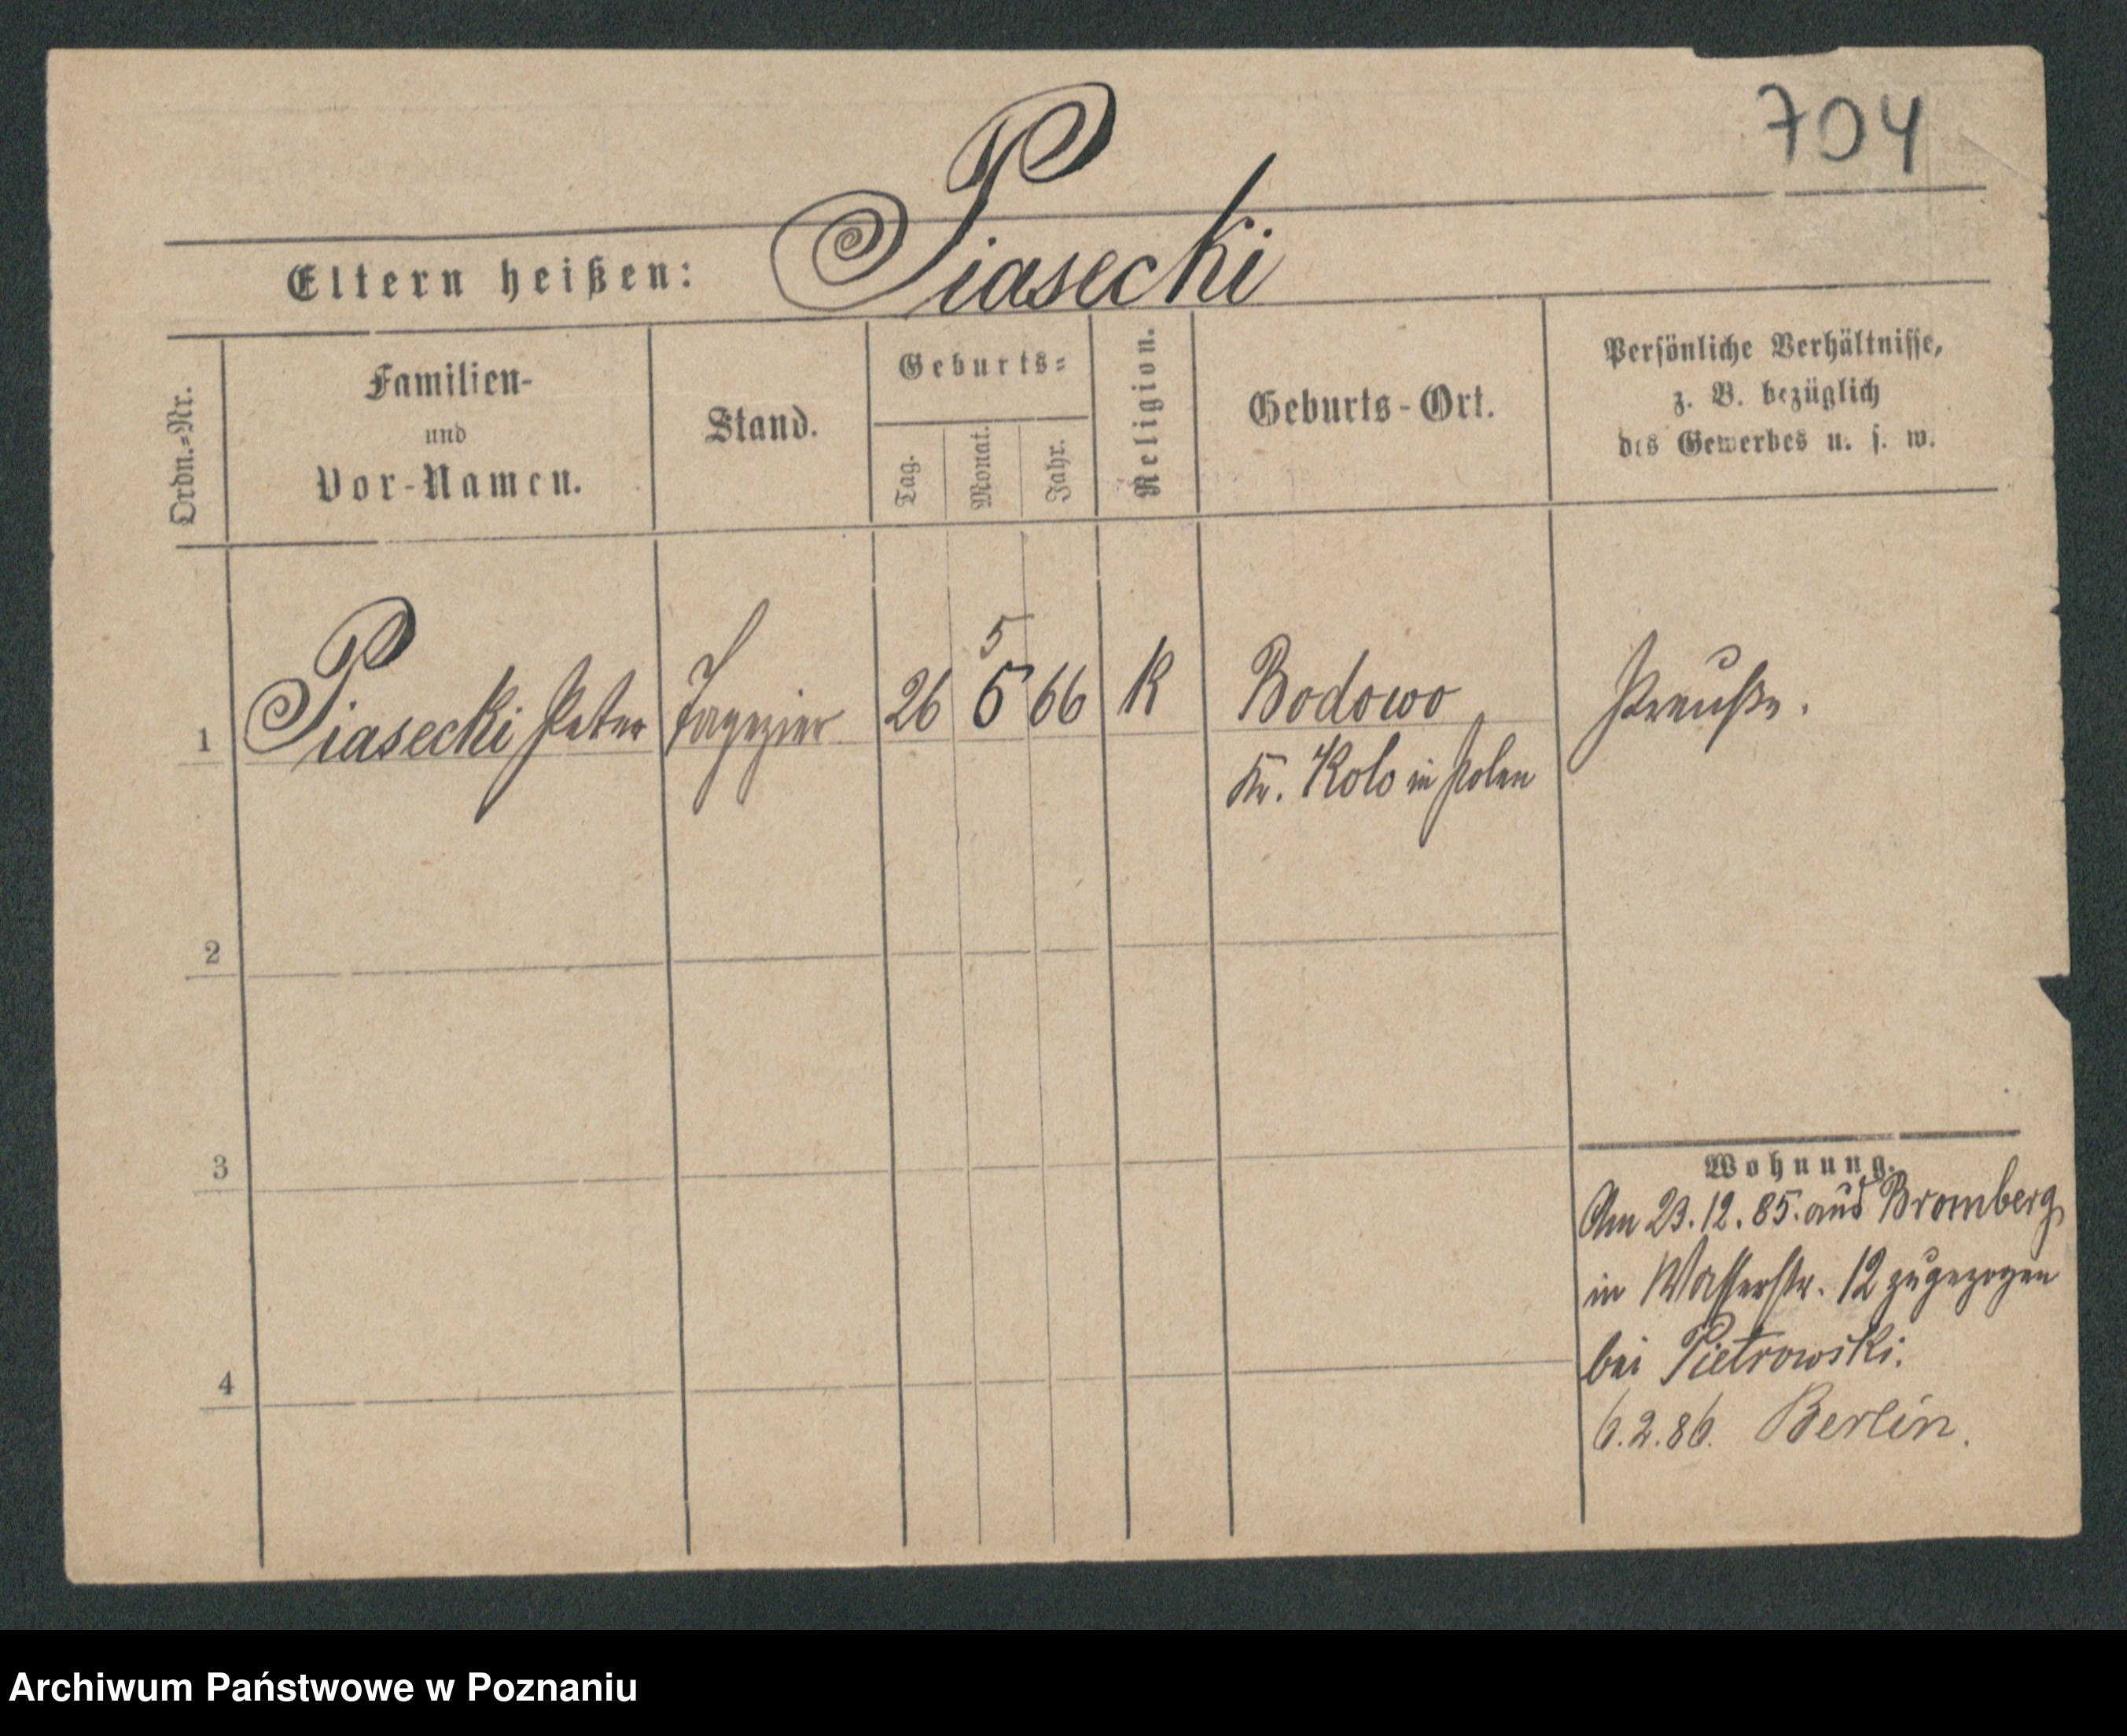 704
Eltern heißen: Piasecki
Ordn.=Nr.
Familien-
und
Vor-Namen.
Stand.
Geburts=
Tag.
Monat.
Jahr.
Religion.
Geburts-Ort.
Persönliche Verhältnisse,
z. B. bezüglich
des Gewerbes u. s. w.
5
1 Piasecki Peter Tapezier 26 5 66 K Bodowo Preuße.
Kr. Kolo in Polen
2
3
4
Wohnung.
Am 23.12.85. aus Bromberg
in Wasserstr. 12 zugezogen
bei Pietrowski.
6.2.86. Berlin.
Archiwum Państwowe w Poznaniu